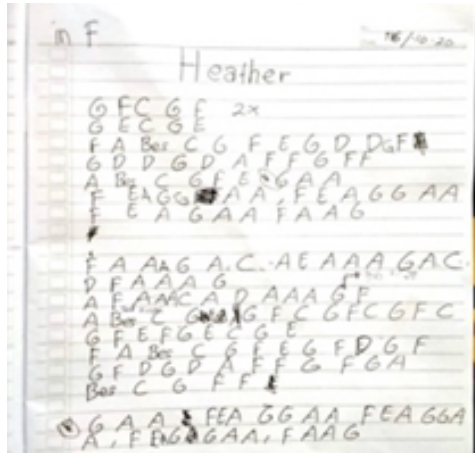 in F
16/10-20
Heather
G F C G F 2x
G E C G E
F A Bes C G F E G D D G F
G D D G D A F F G F F
A Bes C G F E G A A
F E A G G A A , F E A G G A A
F E A G A A F A A G
F A A A G A C A E A A A G A C
D F A A A G
A F A A A C A D A A A G F
A Bes C G G F C G F C G F C
G F E F G E C G E
F A Bes C G F E G F D G F
G F D G D A F F G F G A
Bes C G F F
G A A FEA GGAA FEA GGA
A , F E A G G A A , F A A G